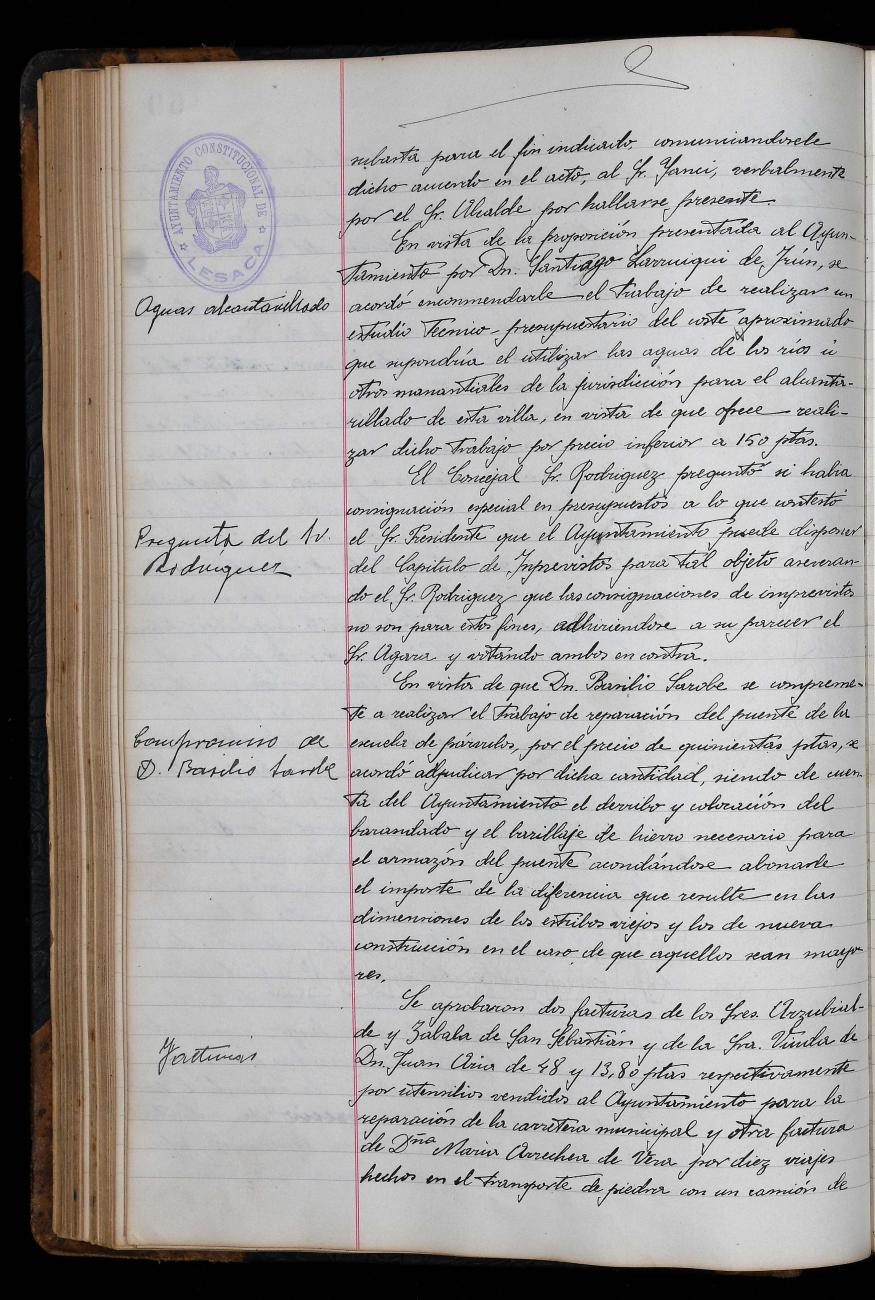 AYUNTAMIENTO CONSTITUCIONAL DE
LESACA
subasta para el fin indicado comunicandosele
dicho acuerdo en el acto, al Sr. Yanci, verbalmente
por el Sr. Alcalde por hallarse presente.
En vista de la proposición presentada al Ayun-
tamiento por Dn. Santiago Larruiqui de Irun, se
Aguas alcantarillado
acordó encommendarle el trabajo de realizar un
estudio Tecnico-presupuestario del coste aproximado
que supondría el utilizar las aguas de los ríos u
otros manantiales de la jurisdicción para el alcanta-
rillado de esta villa, en vista de que ofrece reali-
zar dicho trabajo por precio inferior a 150 ptas.
El Concejal Sr. Rodriguez preguntó si había
consignación especial en presupuestos a lo que contestó
Pregunta del Sr.
Rodriguez
el Sr. Presidente que el Ayuntamiento puede disponer
del Capitulo de Inprevistos para tal objeto aseveran-
do el Sr. Rodriguez que las consignaciones de imprevistos
no son para estos fines, adhiriendose a su parecer el
Sr. Agara y votando ambos en contra.
En vista de que Dn. Basilio Sarobe se compreme-
te a realizar el trabajo de reparación del puente de la
Compromiso de
D. Basilio Sarobe
escuela de párvulos, por el precio de quinientas ptas, se
acordó adjudicar por dicha cantidad, siendo de cuen-
ta del Ayuntamiento el derribo y colocación del
barandado y el barillaje de hierro necesario para
el armazón del puente acordándose abonarle
el importe de la diferencia que resulte en las
dimensiones de los estribos viejos y los de nueva
construcción en el caso de que aquellos sean mayo-
res.
Se aprobaron dos facturas de los Sres. Arzubial-
de y Zabala de San Sebastián y de la Sra. Viuda de
Facturas
Dn. Juan Aria de 48 y 13,80 ptas respectivamente
por utensilios vendidos al Ayuntamiento para la
reparación de la carretera municipal y otra factura
de Dña Maria Arrechea de Vera por diez viajes
hechos en el transporte de piedra con un camión de